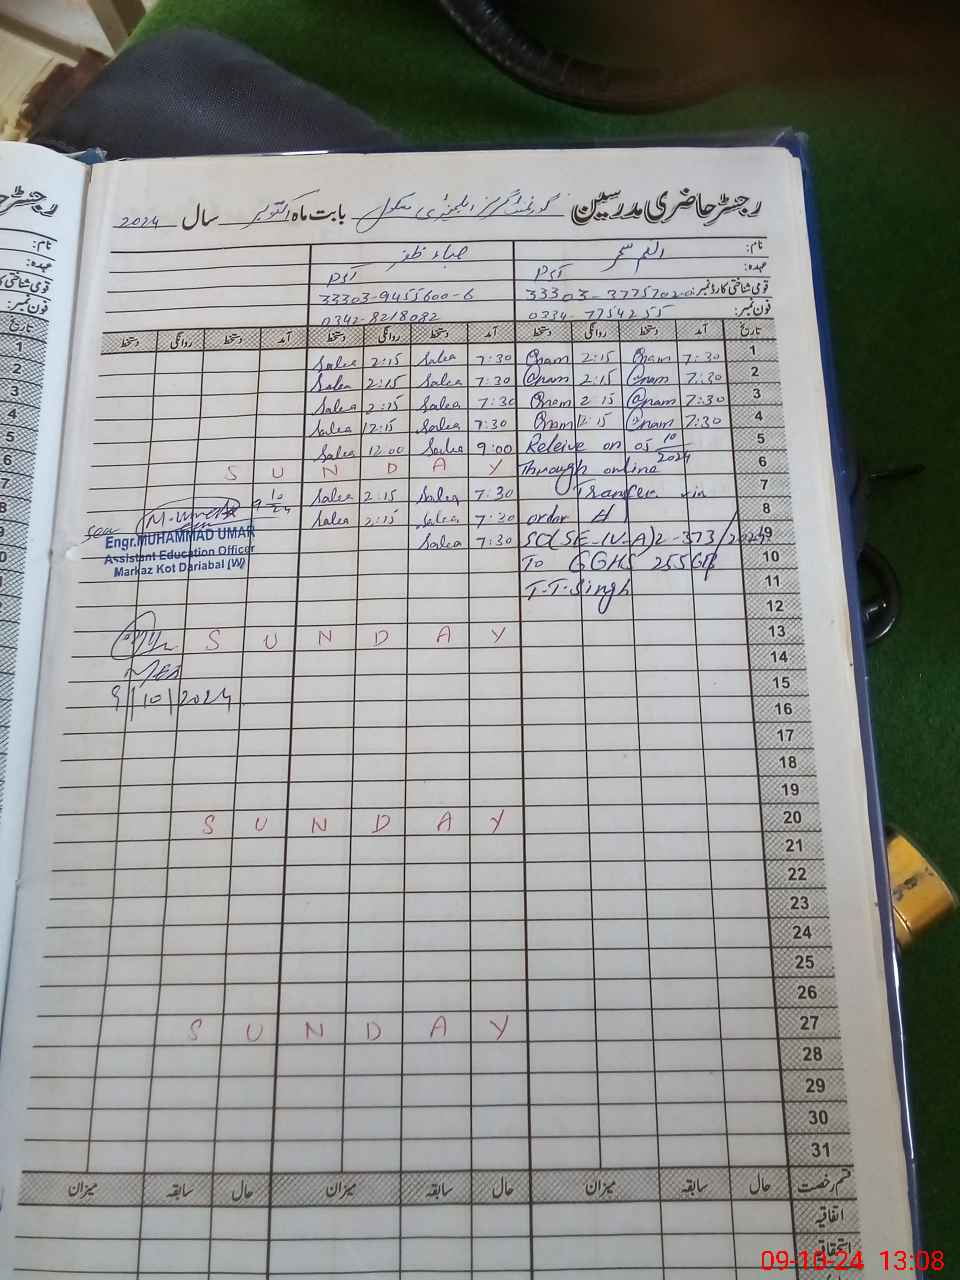 رجسٹر حاضری مدرسین گورنمنٹ گرلز ایلیمنٹری سکول بابت ماہ اکتوبر سال 2024
نام: انعم سحر صباء ظفر
عہدہ: PST PST
قومی شناختی کارڈ نمبر: 33303-3775702-0 33303-9455600-6
فون نمبر: 0334-7754255 0342-8218082
تاریخ آمد دستخط روانگی دستخط آمد دستخط روانگی دستخط آمد دستخط روانگی دستخط
1 7:30 Anam 2:15 Anam 7:30 Salea 2:15 Salea
2 7:30 Anam 2:15 Anam 7:30 Salea 2:15 Salea
3 7:30 Anam 2:15 Anam 7:30 Salea 2:15 Salea
4 7:30 Anam 12:15 Anam 7:30 Salea 12:15 Salea
5 Releive on 05 10/2024 9:00 Salea 12:00 Salea
6 Through online S U N D A Y
7 Transfer 7:30 Salea 2:15 Salea
8 order # 7:30 Salea 2:15 Salea
9 SO(SE-IV-A)2-373/2024 7:30 Salea
10 To GGHS 255GB
11 T.T.Singh
12
13 S U N D A Y
14
15
16
17
18
19
20 S U N D A Y
21
22
23
24
25
26
27 S U N D A Y
28
29
30
31
Seen M. Umar 9 10/24
Engr.MUHAMMAD UMAR
Assistant Education Officer
Markaz Kot Dariabal (W)
MEA
9/10/2024
قسم رخصت حال سابقہ میزان حال سابقہ میزان حال سابقہ میزان
اتفاقیہ
استحقاقیہ
رجسٹر
نام:
عہدہ:
قومی شناختی
فون نمبر:
تاریخ
1
2
3
4
5
6
7
8
9
09-10-24 13:08